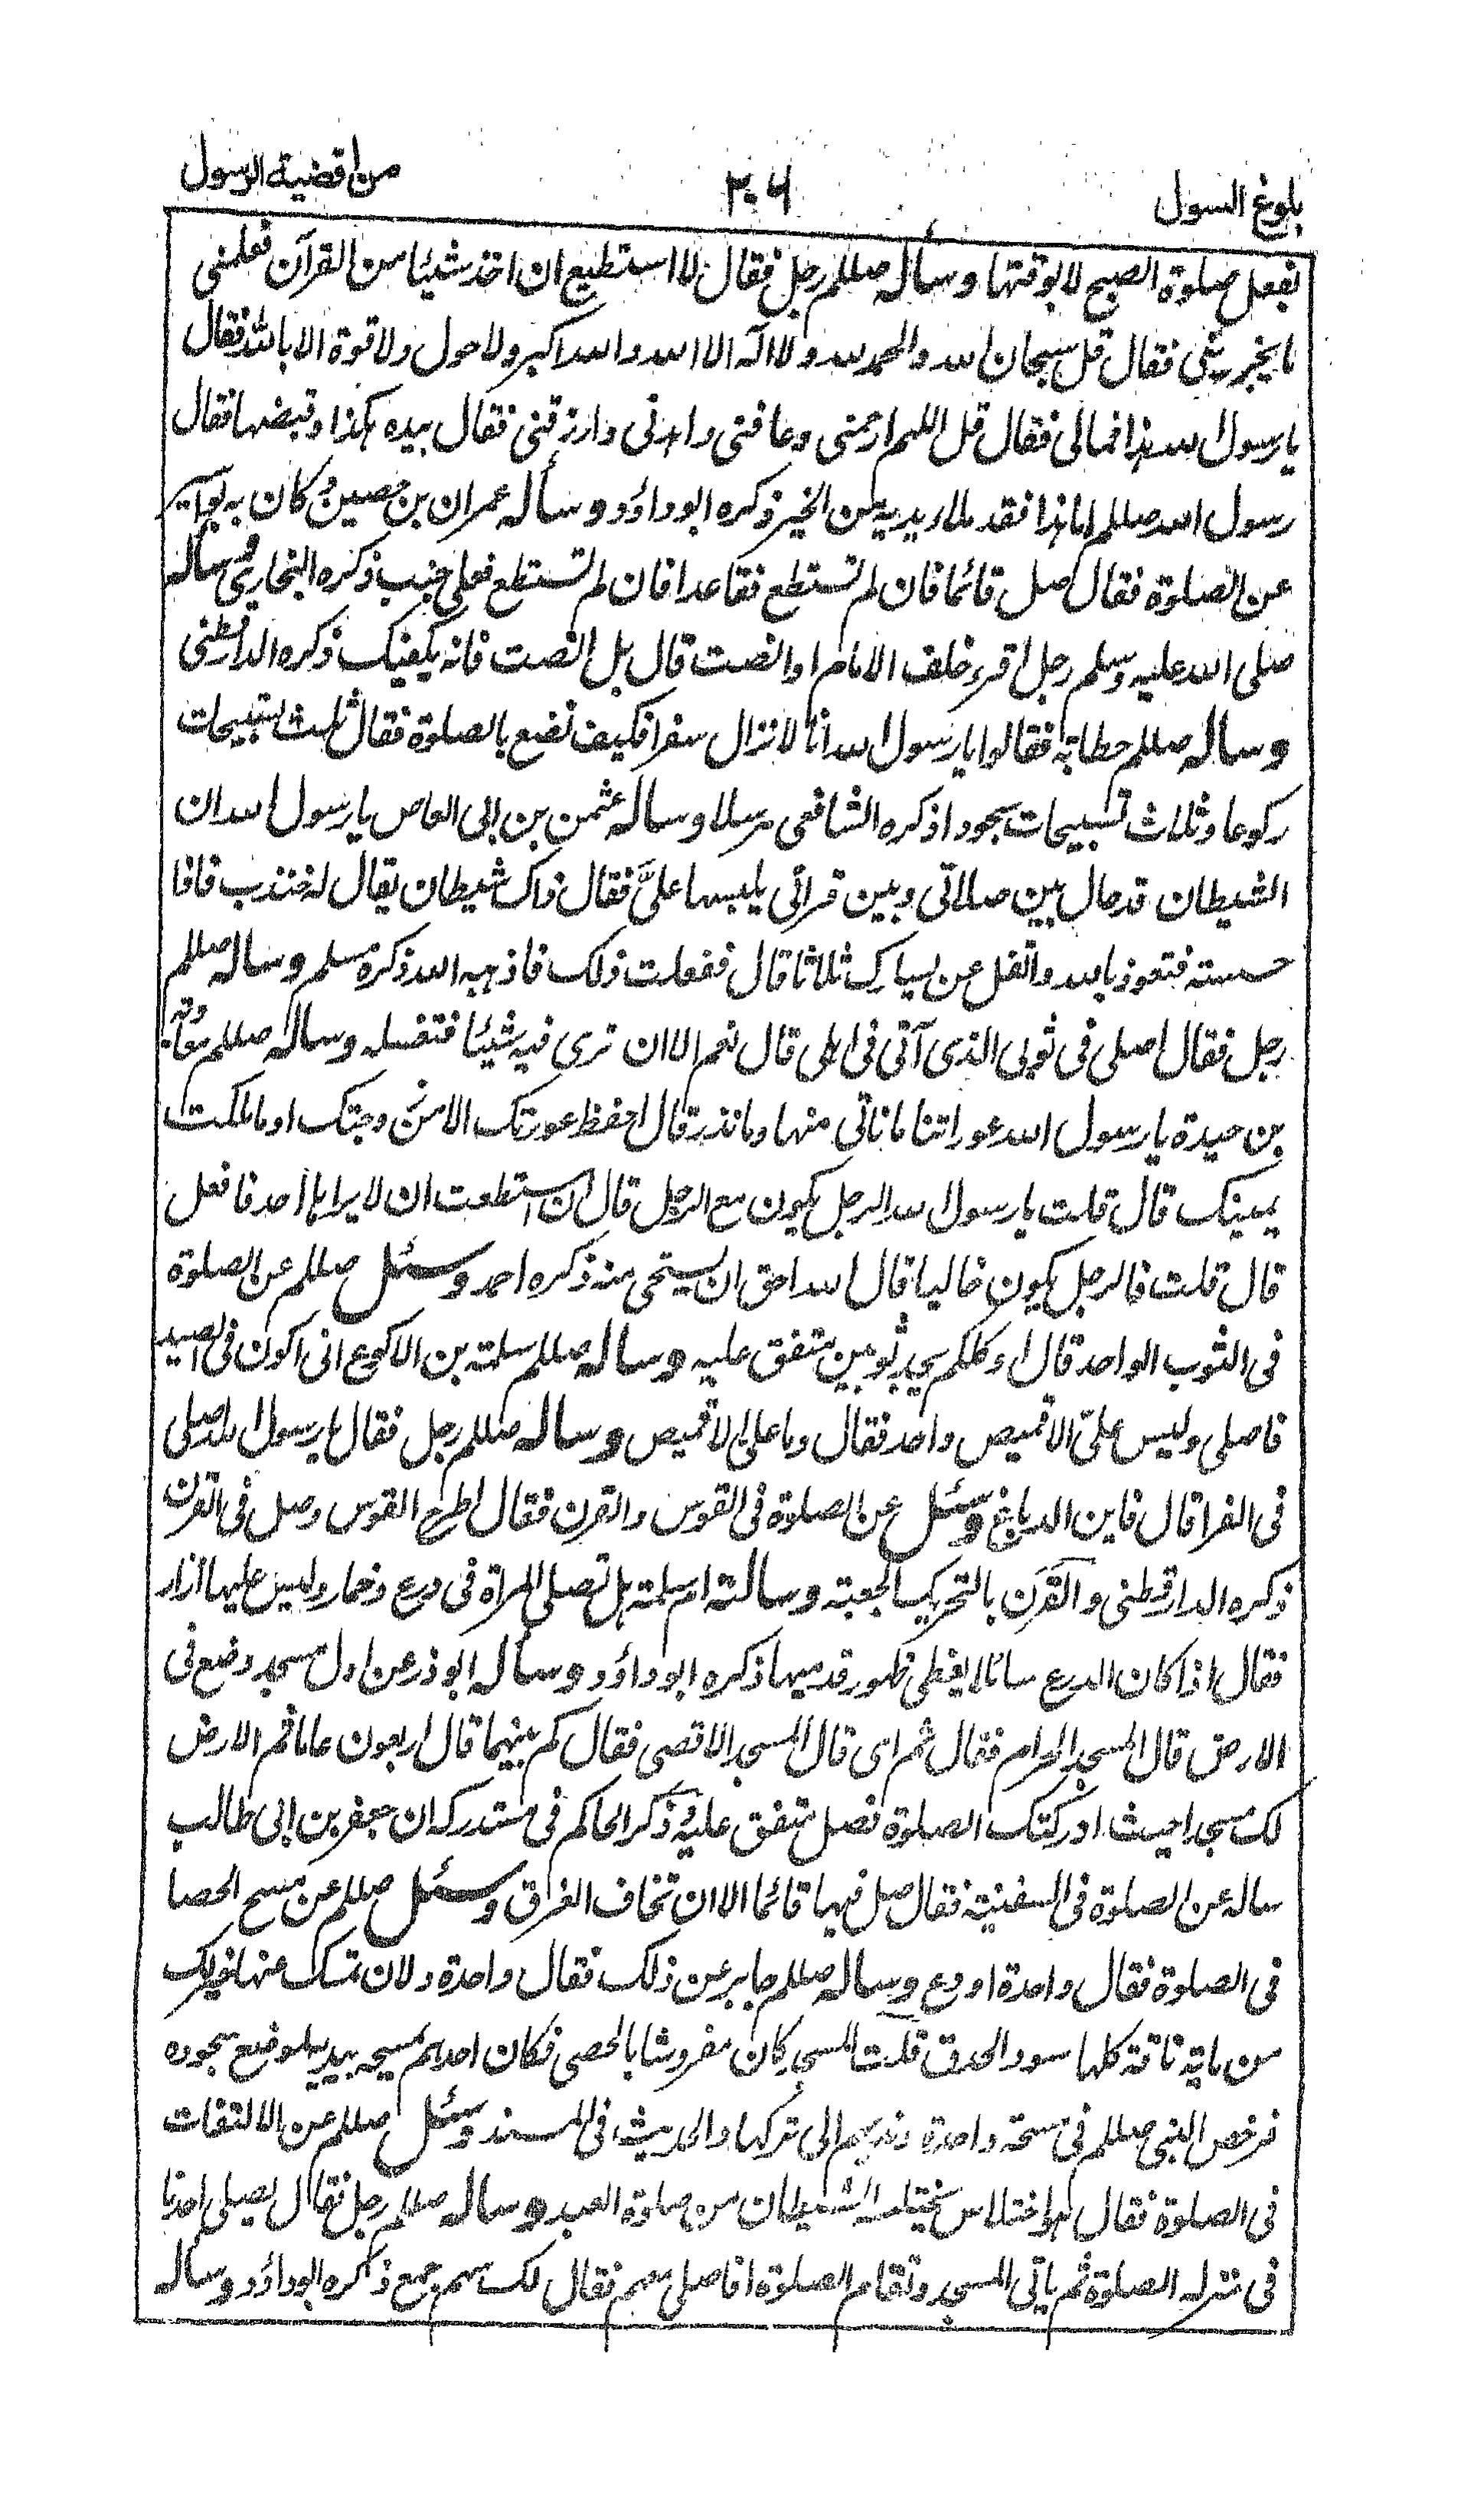 بلوغ السول ٢٠٦ من اقضية الرسول
بفعل صلوة الصبح لا بوقتها وسأله صللم رجل فقال لا استطيع ان اخذ شيئا من القرآن فعلمني
ما يخبرئني فقال قل سبحان الله والحمد لله ولا اله الا الله والله اكبر ولا حول ولا قوة الا بالله فقال
يا رسول الله هذا فمالى فقال قل اللهم ارحمني وعافني واهدني وارزقني فقال بيده هكذا وقبضها فقال
رسول الله صللم اما هذا فقد ملأ يديه من الخير ذكره ابو داؤد وسأله عمران بن حصين وكان به بواسير
عن الصلوة فقال صل قائما فان لم تستطع فقاعدا فان لم تستطع فعلى جنب ذكره البخاري وسأله
صلى الله عليه وسلم رجل اقرء خلف الامام او انصت قال بل انصت فانه يكفيك ذكره الدارقطني
وساله صللم حطابة فقالوا يا رسول الله انا لا نزال سفرا فكيف نصنع بالصلوة فقال ثلث تسبيحات
ركوعا وثلاث تسبيحات سجودا ذكره الشافعي مرسلا وساله عثمن بن ابي العاص يا رسول الله ان
الشيطان قد حال بين صلاتي وبين قرائي يلبسها عليَّ فقال ذاك شيطان يقال له خنزب فاذا
حسسته فتعوذ بالله واتفل عن يسارك ثلاثا قال ففعلت ذلك فاذهبه الله ذكره مسلم وساله صللم
رجل فقال اصلى في ثوبى الذى آتى فى اهلى قال نعم الا ان ترى فيه شيئا فتغسله وساله صللم معاوية
بن حيدة يا رسول الله عوراتنا ما ناتى منها وما نذر قال احفظ عورتك الا من زوجتك او ما ملكت
يمينك قال قلت يا رسول الله الرجل يكون مع الرجل قال ان استطعت ان لا يراها احد فافعل
قال قلت فالرجل يكون خاليا قال الله احق ان يستحى منه ذكره احمد وسئل صللم عن الصلوة
فى الثوب الواحد قال او كلكم يجد ثوبين متفق عليه وساله صللم سلمة بن الاكوع انى اكون فى الصيد
فاصلى وليس علىّ الا قميص واحد فقال وساله صللم رجل فقال يا رسول الله اصلى
فى الفرا قال فاين الدباغ وسئل عن الصلوة فى القوس والقرن فقال اطرح القوس وصل فى القرن
ذكره الدارقطنى والقَرَن بالتحريك الجعبة وسالته ام سلمة هل تصلى المراة فى درع وخمار وليس عليها ازار
فقال اذا كان الدرع سابغا يغطى ظهور قدميها ذكره ابو داؤد وسأله ابو ذر عن اول مسجد وضع فى
الارض قال المسجد الحرام فقال ثم اى قال المسجد الاقصى فقال كم بينهما قال اربعون عاما ثم الارض
لك مسجد احيث ادركتك الصلوة فصل متفق عليه وذكر الحاكم فى مستدركه ان جعفر بن ابى طالب
ساله عن الصلوة فى السفينة فقال صل فيها قائما الا ان تخاف الغرق وسئل صللم عن مسح الحصا
فى الصلوة فقال واحدة او دع وساله صللم جابر عن ذلك فقال واحدة ولان تمسك عنها خير لك
من ماية ناقة كلها سود الحدق قلت المسجد كان مفروشا بالحصى فكان احدهم يمسحه بيديه لموضع سجوده
فرخص النبى صللم فى مسحة واحدة وندبهم الى تركها والحديث فى المسند وسئل صللم عن الالتفات
فى الصلوة فقال هو اختلاس يختلسه الشيطان من صلوة العبد وساله صللم رجل فقال يصلى احدنا
فى منزله الصلوة ثم ياتى المسجد وتقام الصلوة افاصلى معهم فقال لك سهم جمع ذكره ابو داؤد وساله